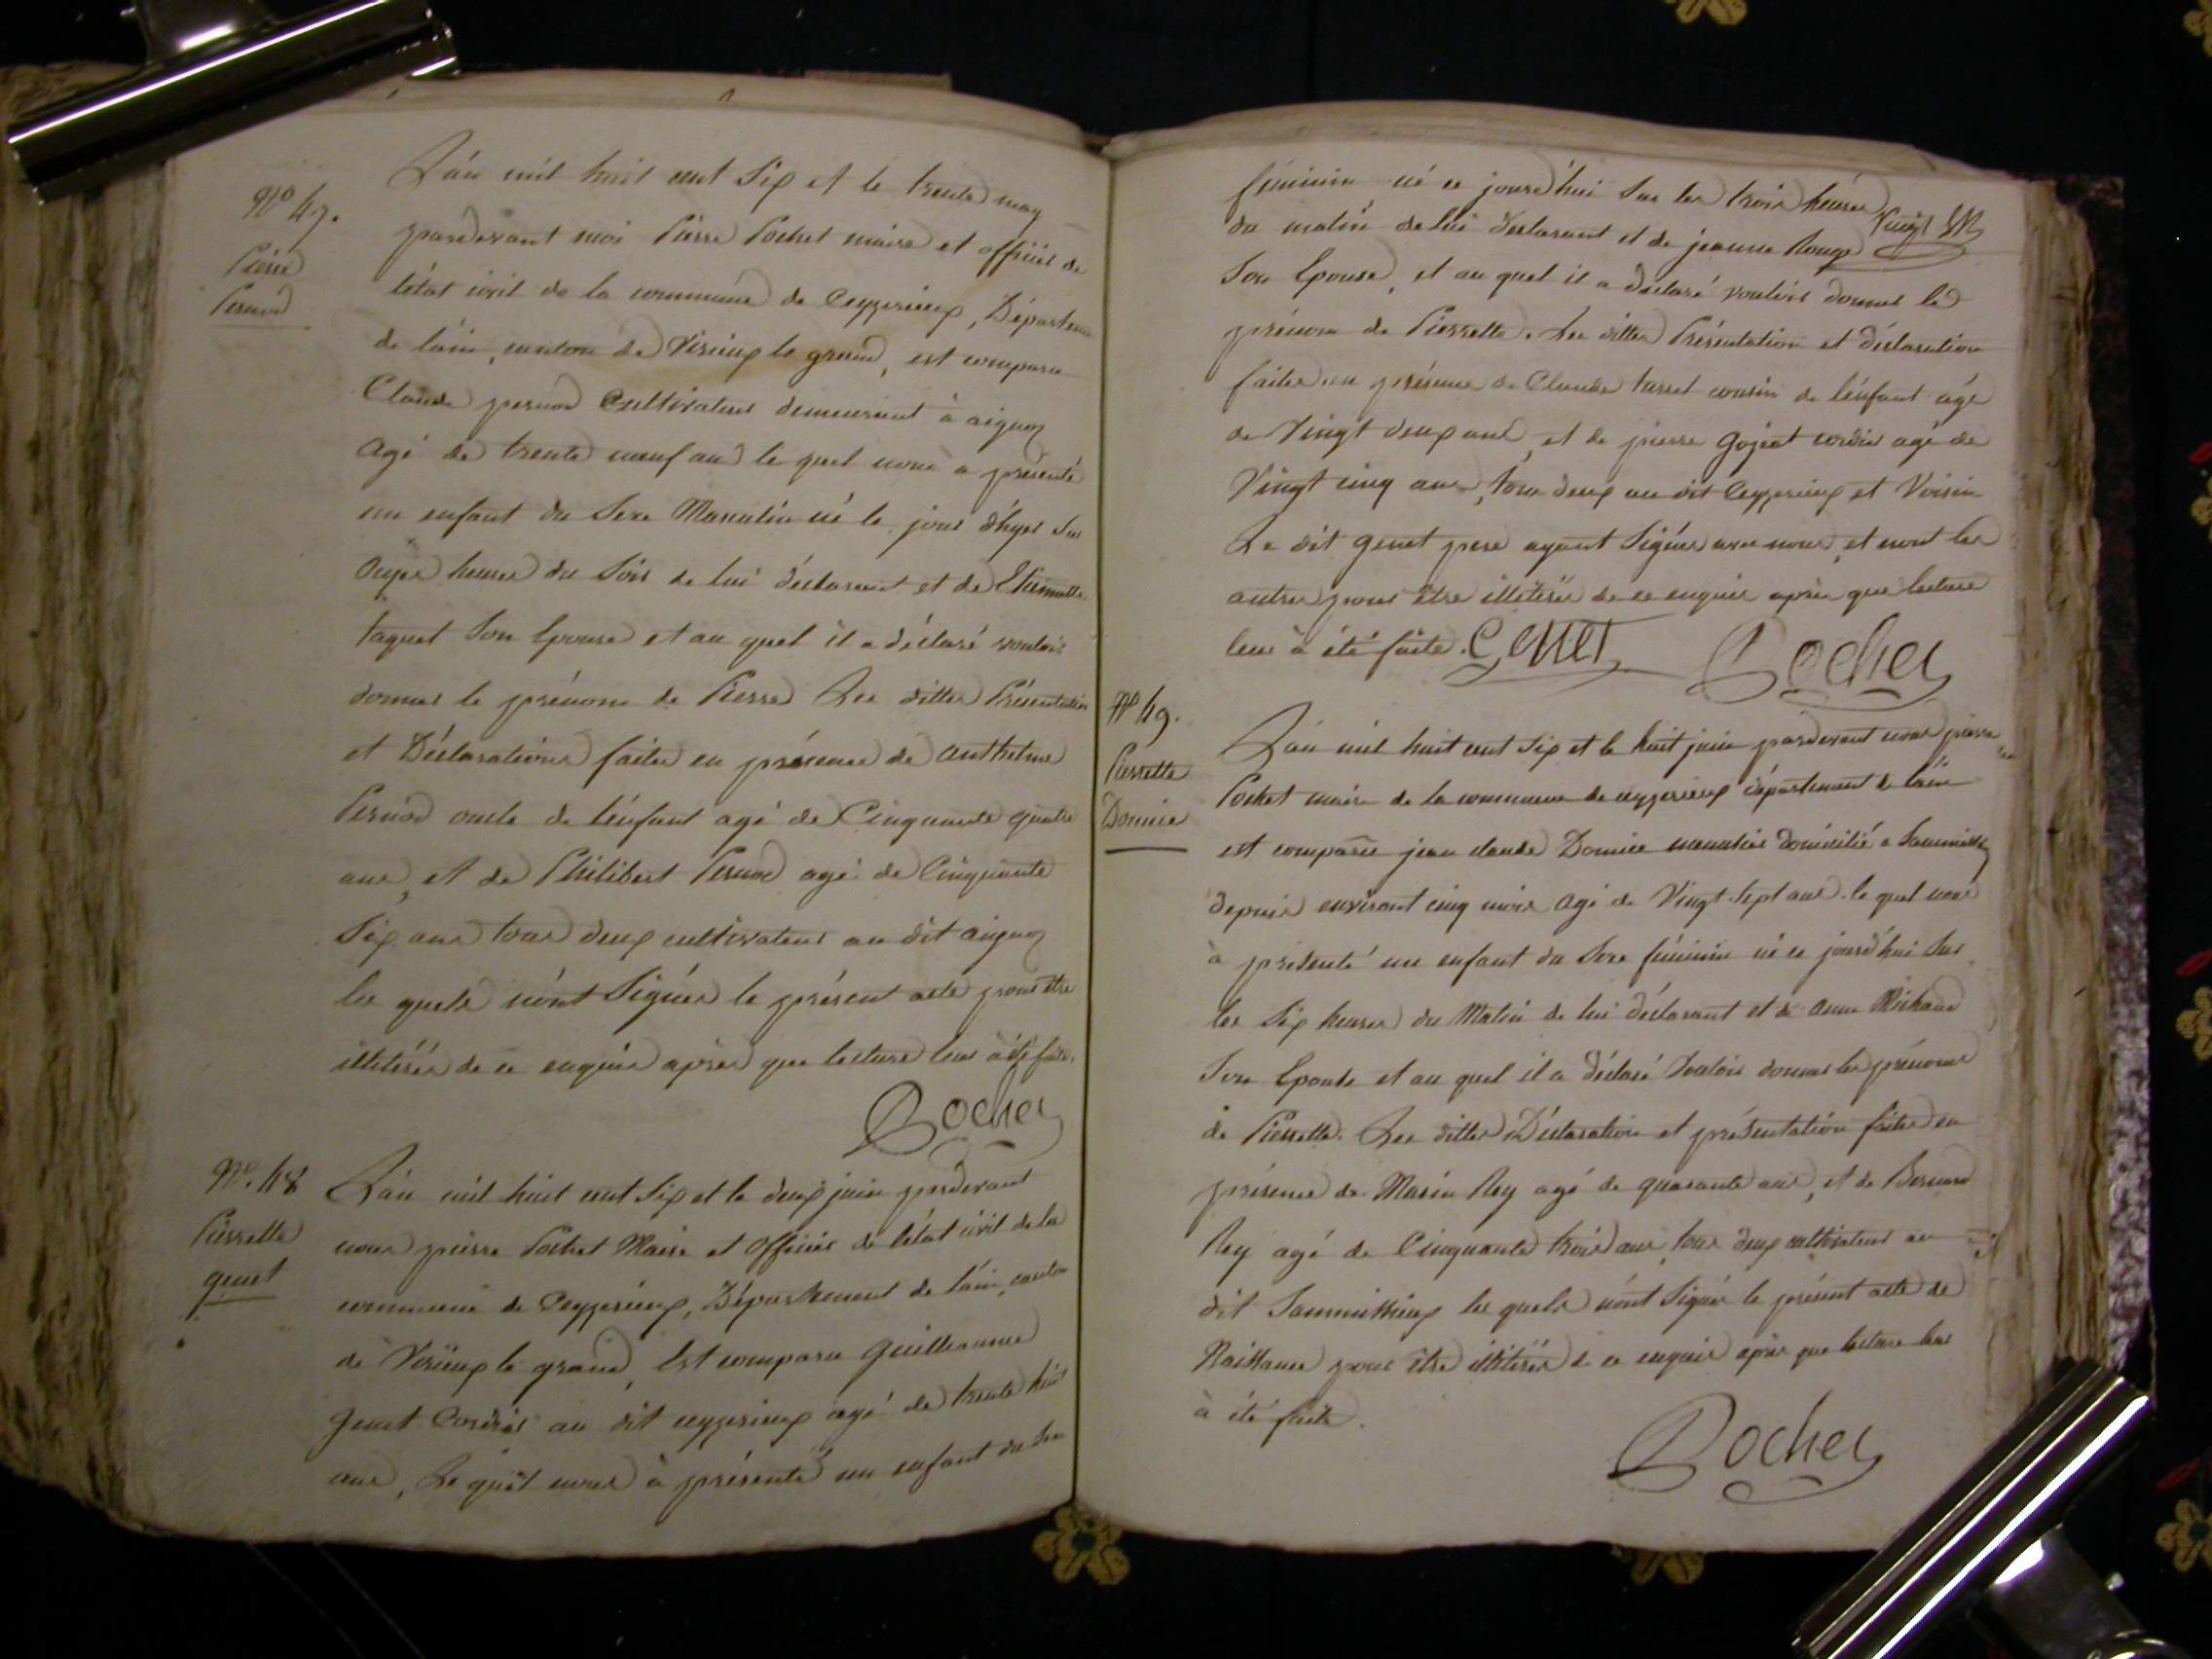 N° 47.
Pierre
Pernod
L'an mil huit cent Six et le trente may
pardevant moi Pierre Pochet maire et officier de
l'état civil de la commune de Ceyzerieux, Département
de l'ain, canton de Virieux le grand, est comparu
Claude pernod Cultivateur demeurant à aignoz
Agé de trente neuf ans le quel nous a présenté
un enfant du Sexe Masculin né le jour d'hyer Sur
Onze heures du Soir de lui déclarant et de
taquet Son Epouse et au quel il a déclaré vouloir
donner le prénom de Pierre Les dittes Présentation
et Déclarations faites en présence de Anthelme
Pernod oncle de l'enfant agé de Cinquante quatre
ans, et de Philibert Pernod agé de Cinquante
Six ans tous deux cultivateurs au dit aignoz
les quels n'ont Signés le présent acte pour être
illitérés de ce enquis après que lecture leur a été faite.
Pochet
N°. 48
Pierrette
genet
L'an mil huit cent Six et le deux juin pardevant
nous pierre Pochet Maire et Officier de l'état civil de la
commune de Ceyzerieux, Département de l'ain, canton
de Virieux le grand, Est comparu Guilleaume
genet Cordier au dit ceyzerieux agé de trente huit
ans, Le quel nous à présenté un enfant du Sexe
féminin né ce jourd'hui Sur les trois heures
du matin de lui déclarant et de jeanne Rouge
Son Epouse, et au quel il a déclaré vouloir donner le
prénom de Pierrette. Les dittes Présentation et déclaration
faites en présence de Claude tasset cousin de l'enfant agé
de Vingt deux ans, et de pierre Gojeat cordier agé de
Vingt cinq ans, tous deux au dit Ceyzerieux et Voisin
Le dit genet pere ayant Signés avec nous, et nont les
autres pour être illitérés de ce enquis après que lecture
leur à été faite. Genet Pochet
N° 49.
Pierrette
Domice
L'an mil huit cent Six et le huit juin pardevant nous pierre
Pochet maire de la commune de ceyzerieux département de l'ain
est comparu jean claude Domice domicilié a
depuis environt cinq mois Agé de Vingt-Sept ans. le quel nous
à présenté un enfant du Sexe féminin né ce jourd'hui Sur
les Six heures du Matin de lui déclarant et de Anne Michaud
Son Epouse et au quel il a déclaré Vouloir donner les prénoms
de Pierrette. Les dittes Déclaration et présentation faites en
présence de Marin Rey agé de quarante ans, et de Bernard
Rey agé de Cinquante trois ans, tous deux cultivateurs au
dit les quels n'ont Signés le présent acte de
Naissance pour être illitérés de ce enquis après que lecture leur
à été faite.
Pochet